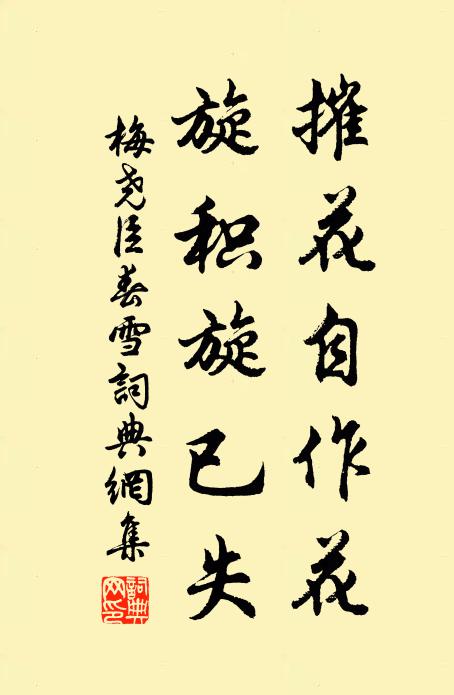 摧花自作花
旋积旋已失
梅尧臣春雪詞典網集
詞典网印